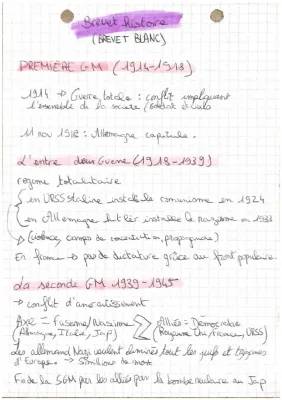 Brevet histoire
(BREVET BLANC)
PREMIÈRE GM (1914-1918)
1914 → Guerre totale : conflit impliquant
l'ensemble de la société (soldat civils
11 nov 1918 : Allemagne capitule.
L'entre deux Guerre (1918-1939)
régime totalitaire
en URSS staline installe le comunisme en 1924
en Allemagne hitler installe le nazisme en 1933
→ (violence, camps de concentration, propagande)
En france → pas de dictature grâce au front populaire
La seconde GM 1939-1945
→ conflit d'anéantissement
Axe = Fascisme/Nazisme Alliés = Démocratie
(Allemagne, Italie, Jap) (Royaume Uni, France, URSS)
Les allemand Nazi veulent éliminés tout les juifs et tziganes
d'Europe → 5 millions de mort
Fin de la 2GM par les alliés par la bombe nucléaire au Jap